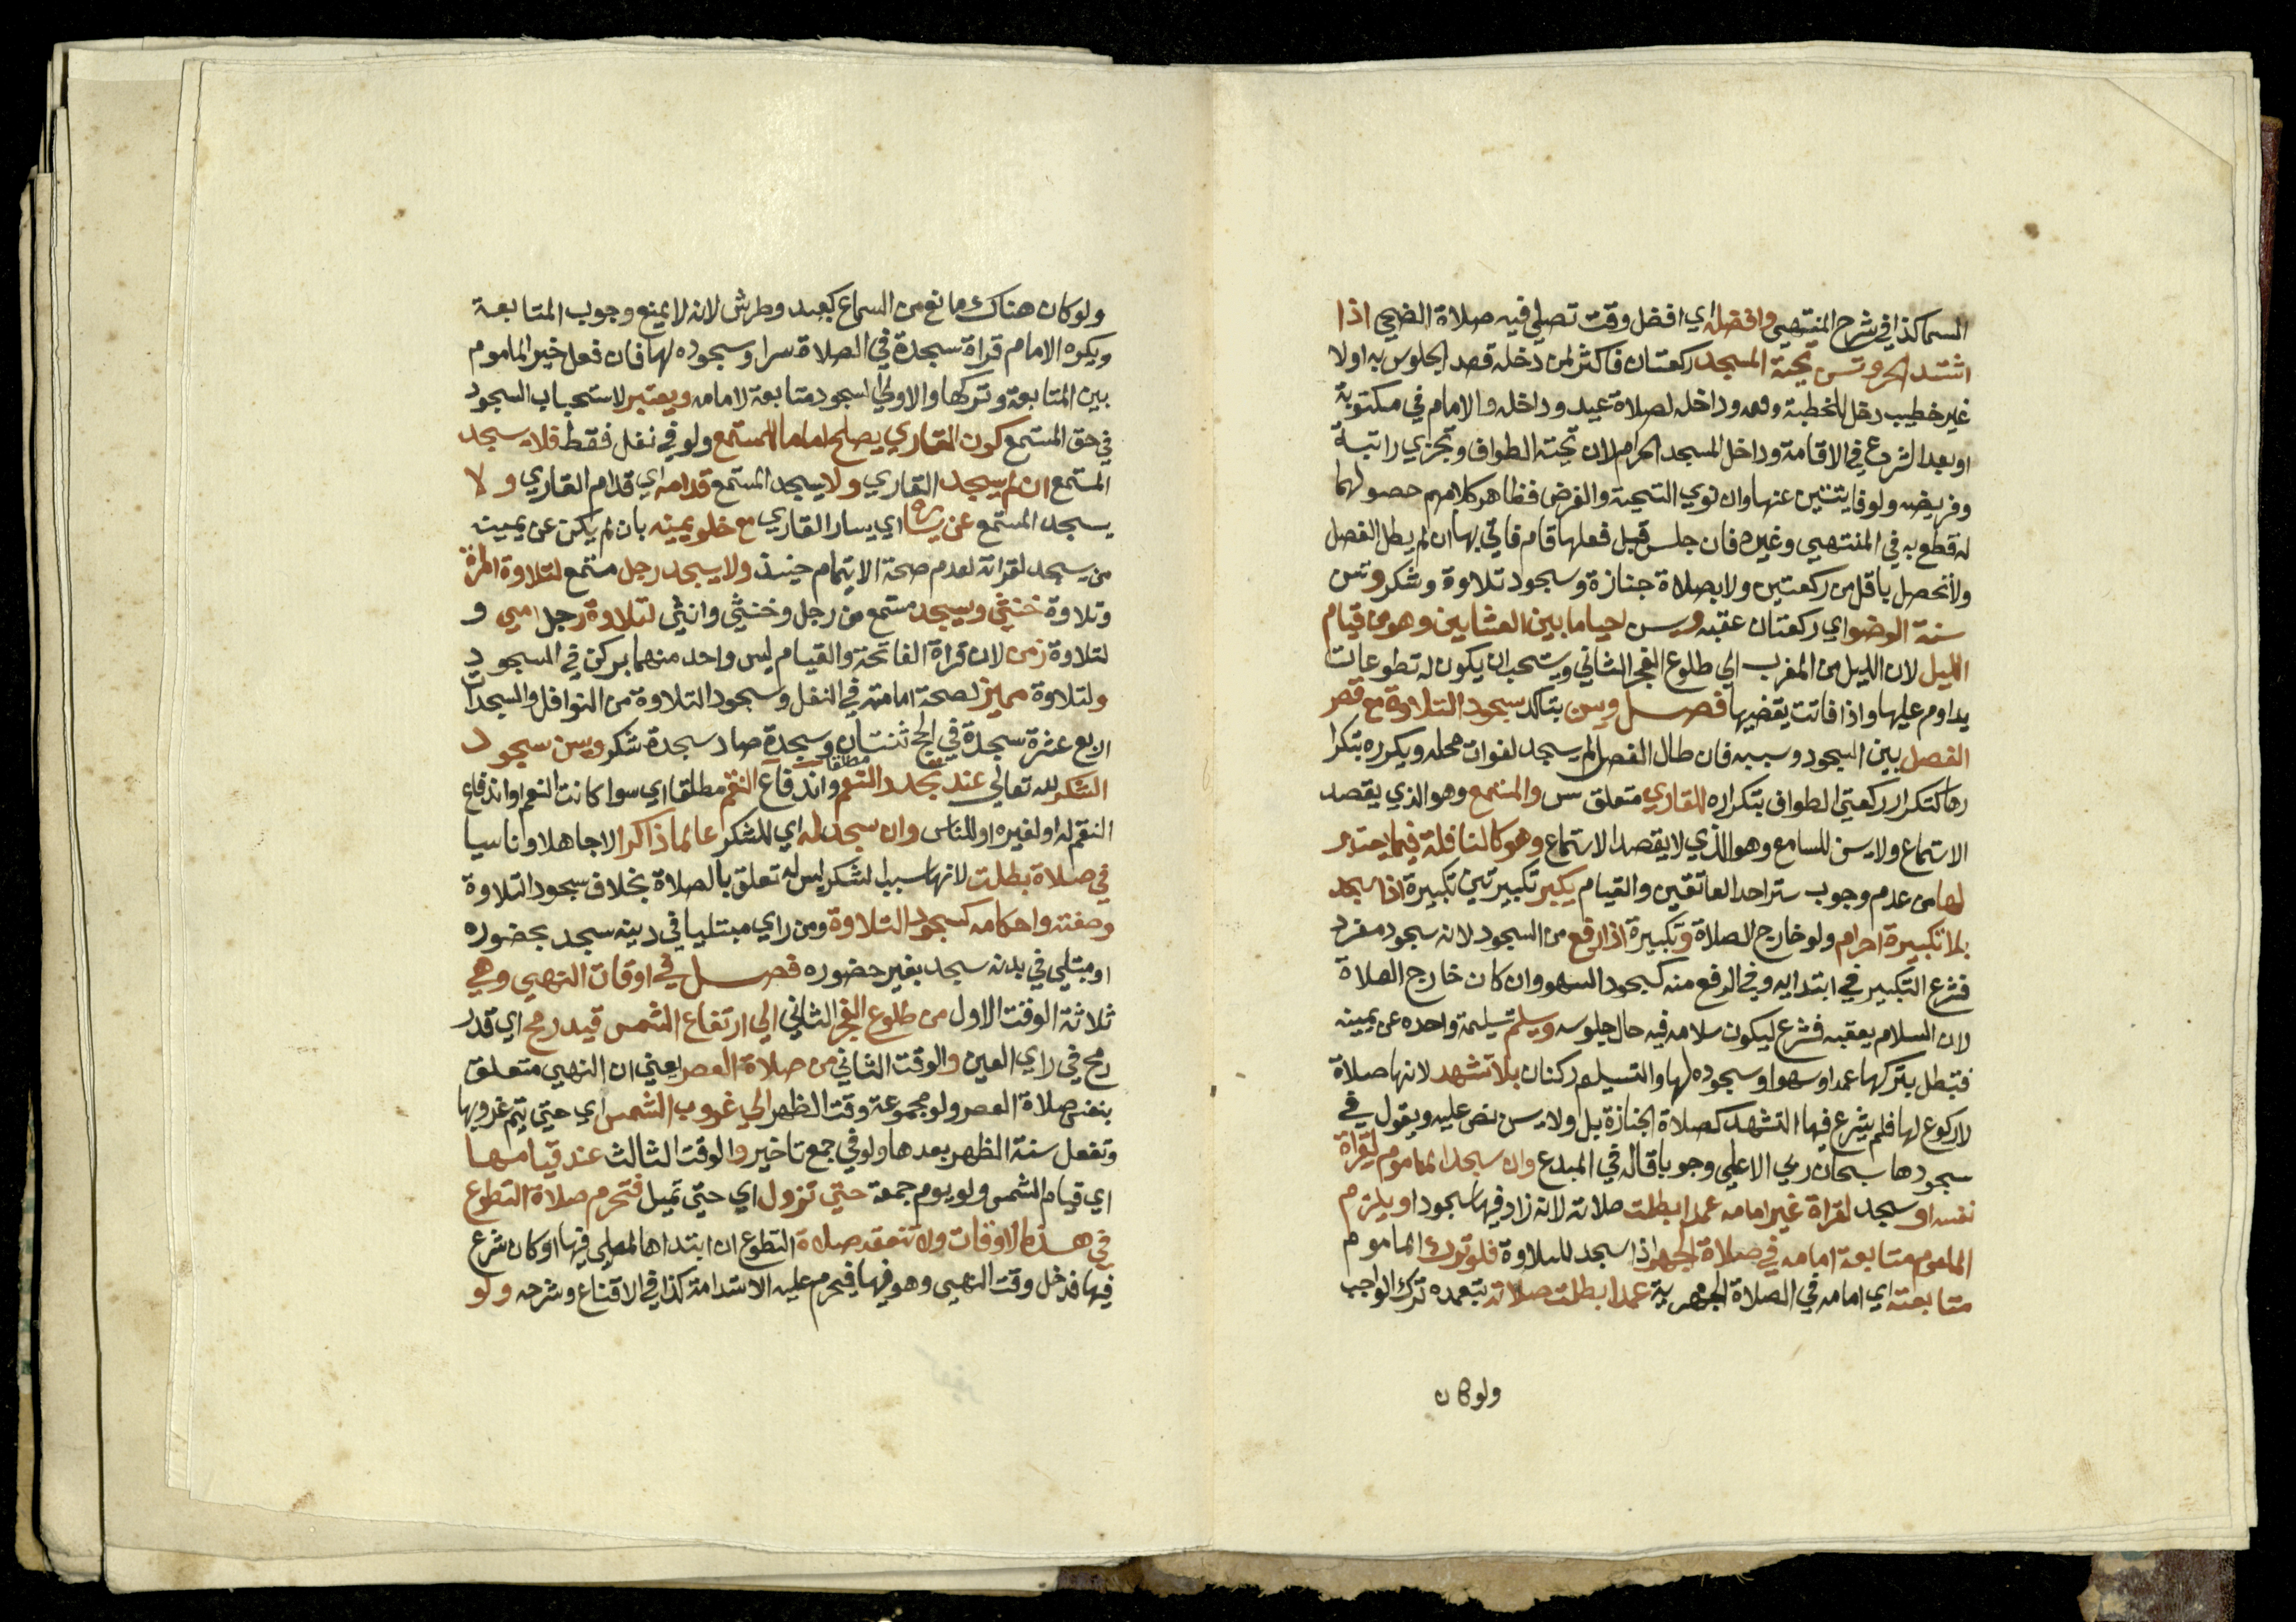 السما كذا في شرح المنتهي وافضله اي افضل وقت تصلي فيه صلاة الضحي اذا
اشتد الحر وتسن تحية المسجد ركعتان فاكثر لمن دخله قصد الجلوس به اولا
غير خطيب دخل للخطبة وقيمه وداخله لصلاة عيد وداخله والامام في مكتوبة
او بعد الشروع في الاقامة وداخل المسجد الحرام لان تحيته الطواف وتجزي راتبة
وفريضه ولو فايتتين عنها وان نوي التحية والفرض فظاهر كلامهم حصولهما
له قطع به في المنتهي وغيره فان جلس قبل فعلها قام فاتي بها ان لم يطل الفصل
ولا تحصل باقل من ركعتين ولا بصلاة جنازة وسجود تلاوة وشكر وتسن
سنة الوضو اي ركعتان عقبه ويسن احيا ما بين العشايين وهو من قيام
الليل لان الليل من المغرب الي طلوع الفجر الثاني ويستحب ان يكون له تطوعات
يداوم عليها واذا فاتت يقضيها فصل ويسن بتاكد سجود التلاوة مع قصر
الفصل بين السجود وسببه فان طال الفصل لم يسجد لفوات محله ويكرره بتكرا
رها كتكرار ركعتي الطواف بتكراره للقاري متعلق بيسن والمستمع وهو الذي يقصد
الاستماع ولا يسن للسامع وهو الذي لا يقصد الاستماع وهو كالنافلة فيما يعتبر
لها من عدم وجوب ستر احد العاتقين والقيام يكبر تكبيرتين تكبيرة اذا سجد
بلا تكبيرة احرام ولو خارج الصلاة وتكبيرة اذا رفع من السجود لانه سجود مفرد
فشرع التكبير في ابتدايه وفي الرفع منه كسجود السهو وان كان خارج الصلاة
لان السلام يعقبه فشرع ليكون سلامه فيه حال جلوسه ويسلم تسليمة واحده عن يمينه
فتبطل بتركها عمدا وسهوا وسجوده لها والتسليم ركنان بلا تشهد لانها صلاة
لا ركوع لها فلم يشرع فيها التشهد كصلاة الجنازة بل ولا يسن نص عليه ويقول في
سجودها سبحان ربي الاعلي وجوبا قاله في المبدع وان سجد الماموم لقراة
نفسه او سجد لقراة غير امامه عمدا بطلت صلاته لانه زاد فيها سجودا ويلزم
الماموم متابعة امامه في صلاة الجهر اذا سجد للتلاوة فلو ترك الماموم
متابعته اي امامه في الصلاة الجهرية عمدا بطلت صلاته بتعمده ترك الواجب
ولو كان
ولو كان هناك مانع من السماع كبعد وطرش لانه لا يمنع وجوب المتابعة
ويكره الامام قراة سجدة في الصلاة سرا وسجوده لها فان فعل خير الماموم
بين المتابعة وتركها والاولي السجود متابعة لامامه ويعتبر لاستحباب السجود
في حق المستمع كون القاري يصلح اماما للمستمع ولو في نفل فقط فلا يسجد
المستمع ان لم يسجد القاري ولا يسجد المستمع قدامه اي قدام القاري ولا
يسجد المستمع عن يساره اي يسار القاري مع خلو يمينه بان لم يكن عن يمينه
من يسجد لقراته لعدم صحة الايتمام حينيذ ولا يسجد رجل مستمع لتلاوة المراة
وتلاوة خنثي ويسجد مستمع من رجل وخنثي وانثي لتلاوة رجل امي و
لتلاوة زمن لان قراة الفاتحة والقيام ليس واحد منهما بركن في السجود
ولتلاوة مميز لصحة امامته في النفل وسجود التلاوة من النوافل والسجدات
اربع عشرة سجدة في الحج ثنتان وسجدة صاد سجدة شكر ويسن سجود
الشكر لله تعالي عند تجدد النعم مطلقا واندفاع النقم مطلقا اي سوا كانت النعم او اندفاع
النقم له او لغيره او للناس وان سجد له اي للشكر عالما ذاكرا لا جاهلا وناسيا
في صلاة بطلت لانها سببا لشكر ليس له تعلق بالصلاة بخلاف سجود التلاوة
وصفته واحكامه كسجود التلاوة ومن راي مبتليا في دينه سجد بحضوره
او مبتلي في بدنه سجد بغير حضوره فصل في اوقات النهي وهي
ثلاثة الوقت الاول من طلوع الفجر الثاني الي ارتفاع الشمس قيد رمح اي قدر
رمح في راي العين والوقت الثاني من صلاة العصر يعني ان النهي متعلق
بنفس صلاة العصر ولو مجموعة وقت الظهر الي غروب الشمس اي حتي يتم غروبها
وتفعل سنة الظهر بعدها ولو في جمع تاخير والوقت الثالث عند قيامها
اي قيام الشمس ولو يوم جمعة حتي تزول اي حتي تميل فتحرم صلاة التطوع
في هذه الاوقات ولا تنعقد صلاة التطوع ان ابتداها المصلي فيها او كان شرع
فيها فدخل وقت النهي وهو فيها فيحرم عليه الاستدامة كذا في الاقناع وشرحه ولو